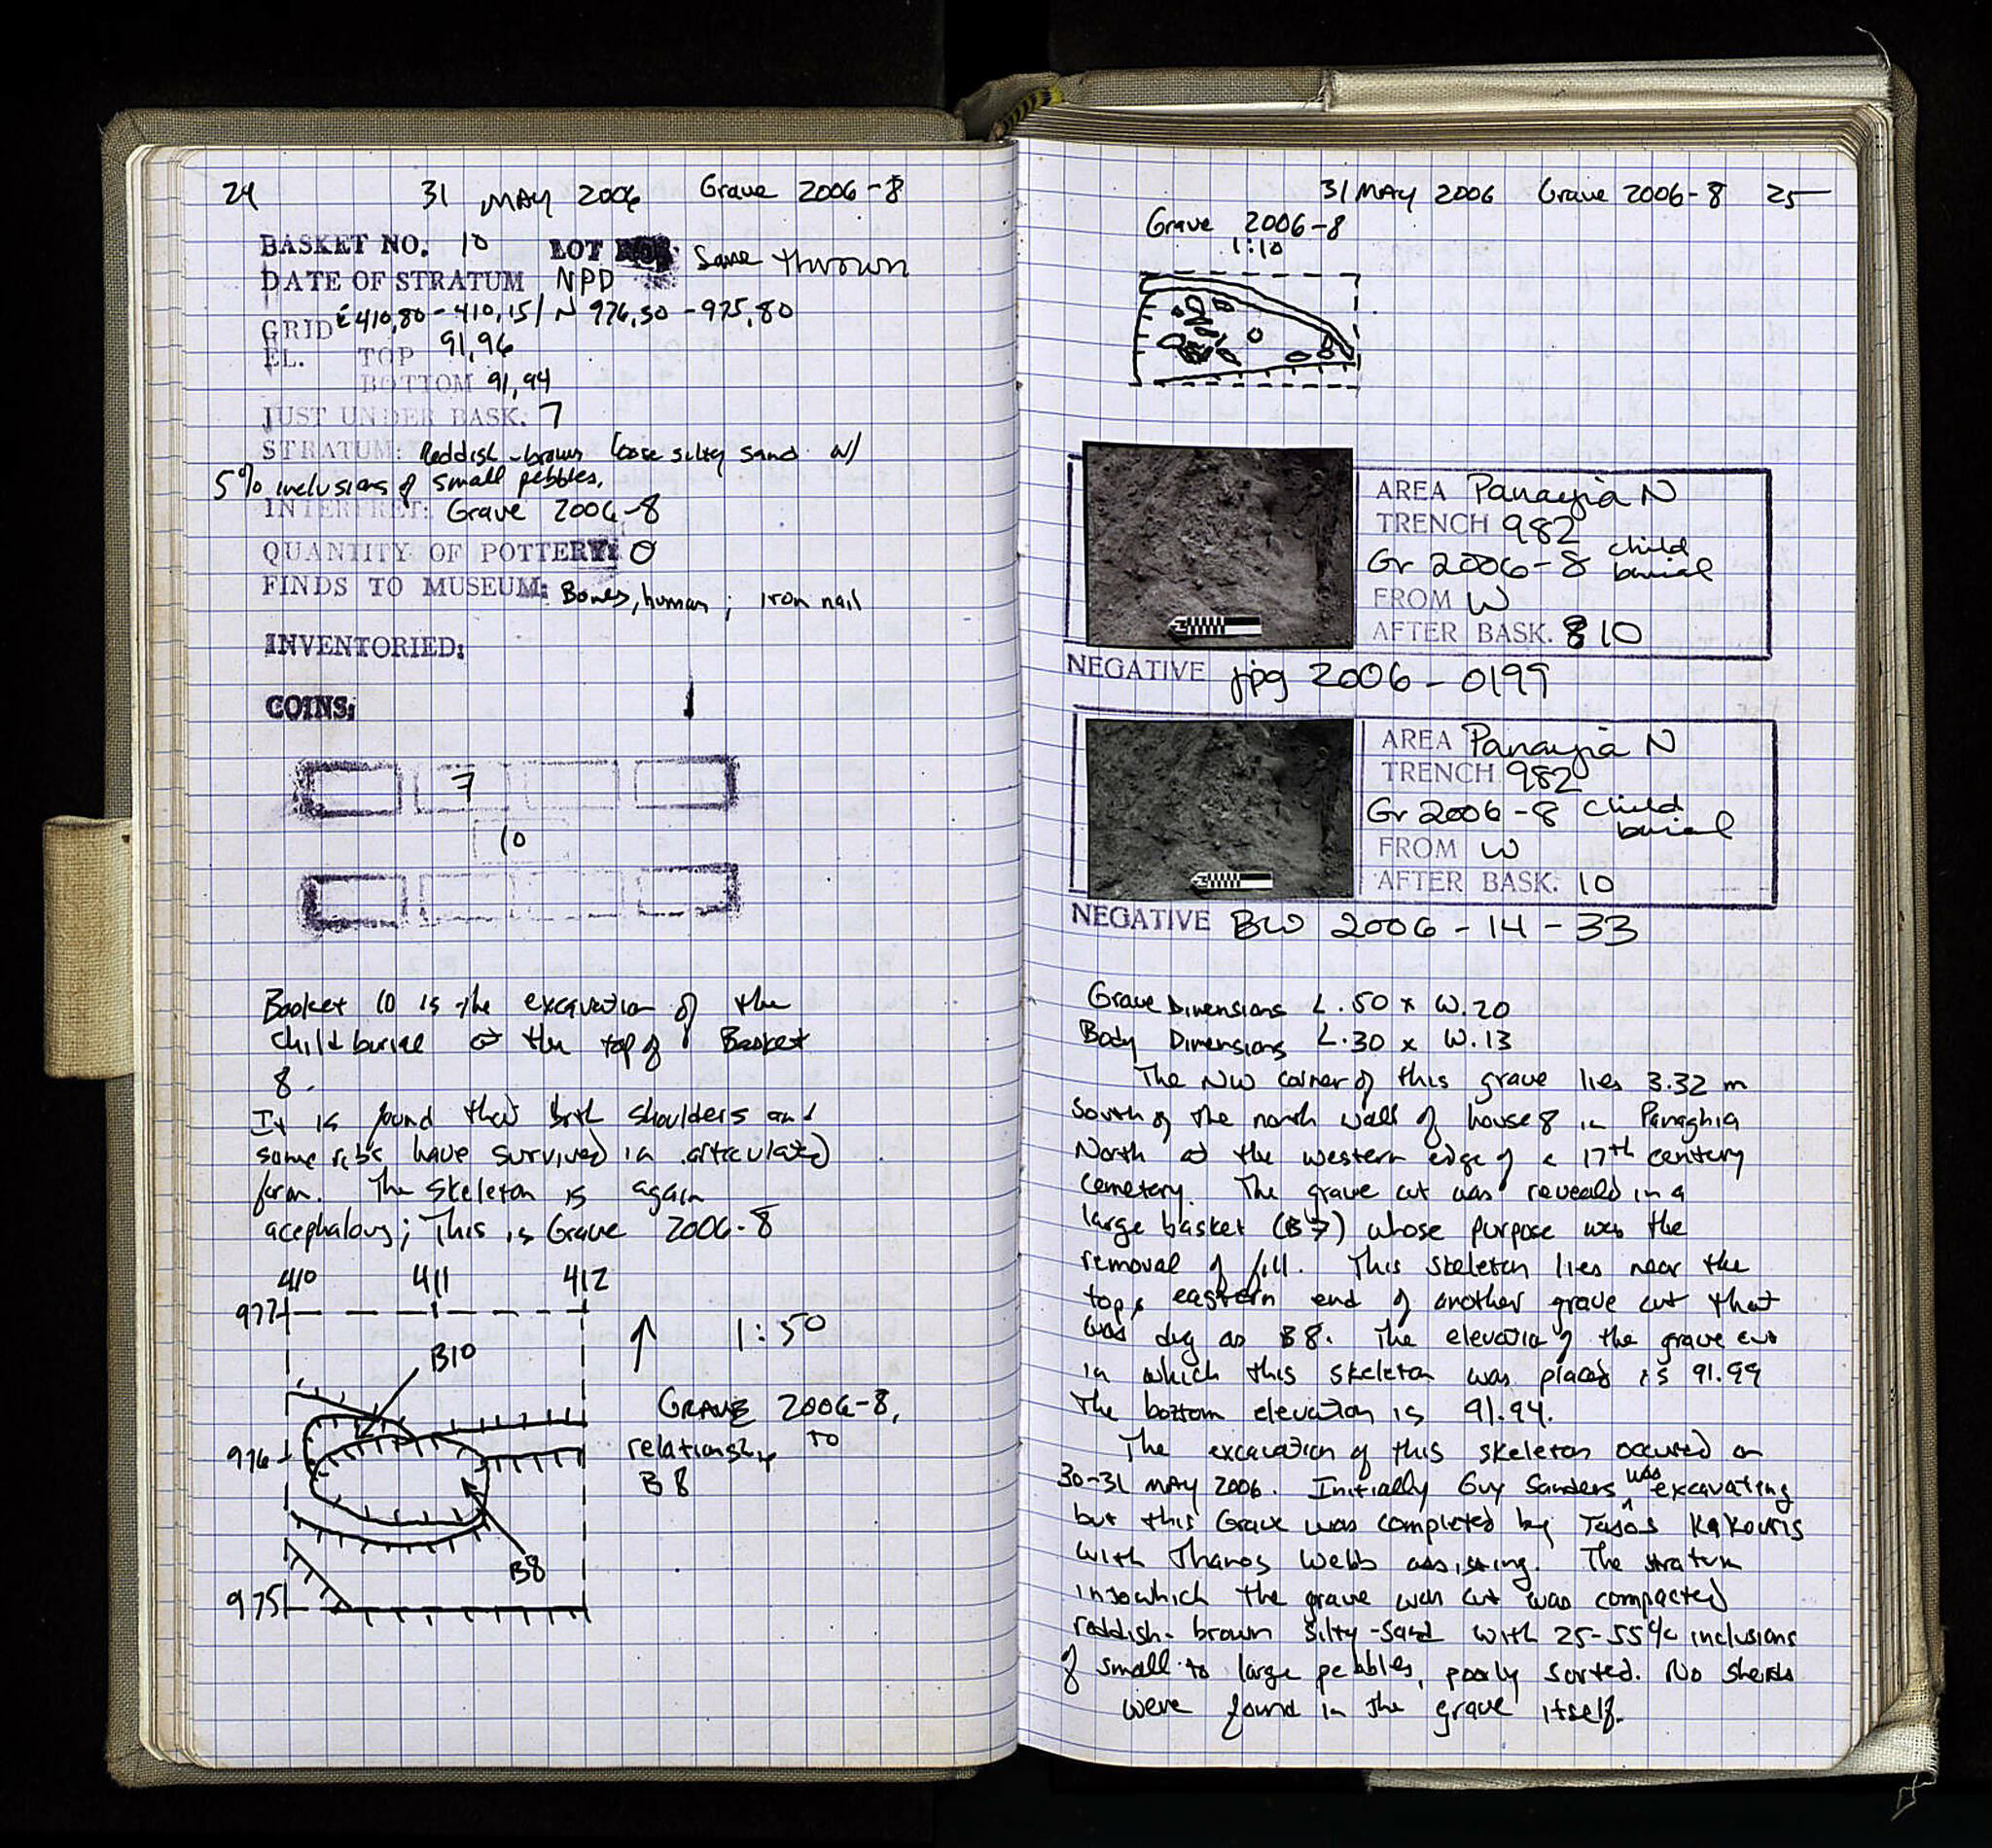 24 31 MAY 2006 Grave 2006-8
BASKET NO. 10 LOT Save thrown
DATE OF STRATUM NPD
GRID E 410,80 - 410,15 / N 976,30 - 975,80
EL. TOP 91,96
BOTTOM 91,94
JUST UNDER BASK: 7
STRATUM: Reddish-brown loose silty sand w/
5% inclusions of small pebbles.
INTERPRET: Grave 2006-8
QUANTITY OF POTTERY: 0
FINDS TO MUSEUM: Bones, human; iron nail
INVENTORIED:
COINS:
7
10
Basket 10 is the excavation of the
child burial at the top of Basket
8.
It is found that both shoulders and
some ribs have survived in articulated
form. The skeleton is again
acephalous; This is Grave 2006-8
410 411 412
977
B10
1:50
GRAVE 2006-8,
976
relationship to
B8
B8
975
31 MAY 2006 Grave 2006-8 25
Grave 2006-8
1:10
AREA Panayia N
TRENCH 982
Gr 2006-8 child
burial
FROM W
AFTER BASK. 10
NEGATIVE jpg 2006-0199
AREA Panayia N
TRENCH 982
Gr 2006-8 child
burial
FROM W
AFTER BASK. 10
NEGATIVE BW 2006-14-33
Grave Dimensions L.50 x W.20
Body Dimensions L.30 x W.13
The NW corner of this grave lies 3.32 m
south of the north wall of house 8 in Panaghia
North at the western edge of a 17th century
cemetery. The grave cut was reveald in a
large basket (B7) whose purpose was the
removal of fill. This skeleton lies near the
top, eastern end of another grave cut that
was dug as B8. The elevation of the grave cut
in which this skeleton was placed is 91.99
The bottom elevation is 91.94.
The excavation of this skeleton occured on
30-31 MAY 2006. Initially Guy Sanders was excavating
but this Grave was completed by Tasos Kakouris
with Thanos Webb assisting. The stratum
into which the grave was cut was compacted
reddish-brown silty-sand with 25-55% inclusions
of small to large pebbles, poorly sorted. No sherds
were found in the grave itself.